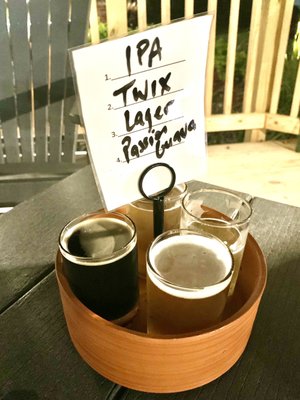 1. IPA
2. TWIX
3. Lager
4. Passion Guava